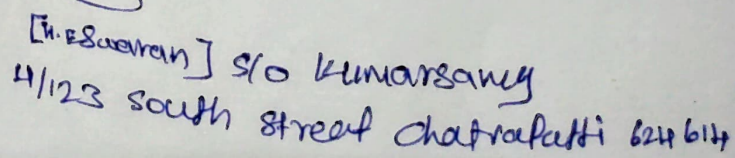 [K.ESwaran] S/o Kumarsamy
4/123 South Street Chatrapatti 624614